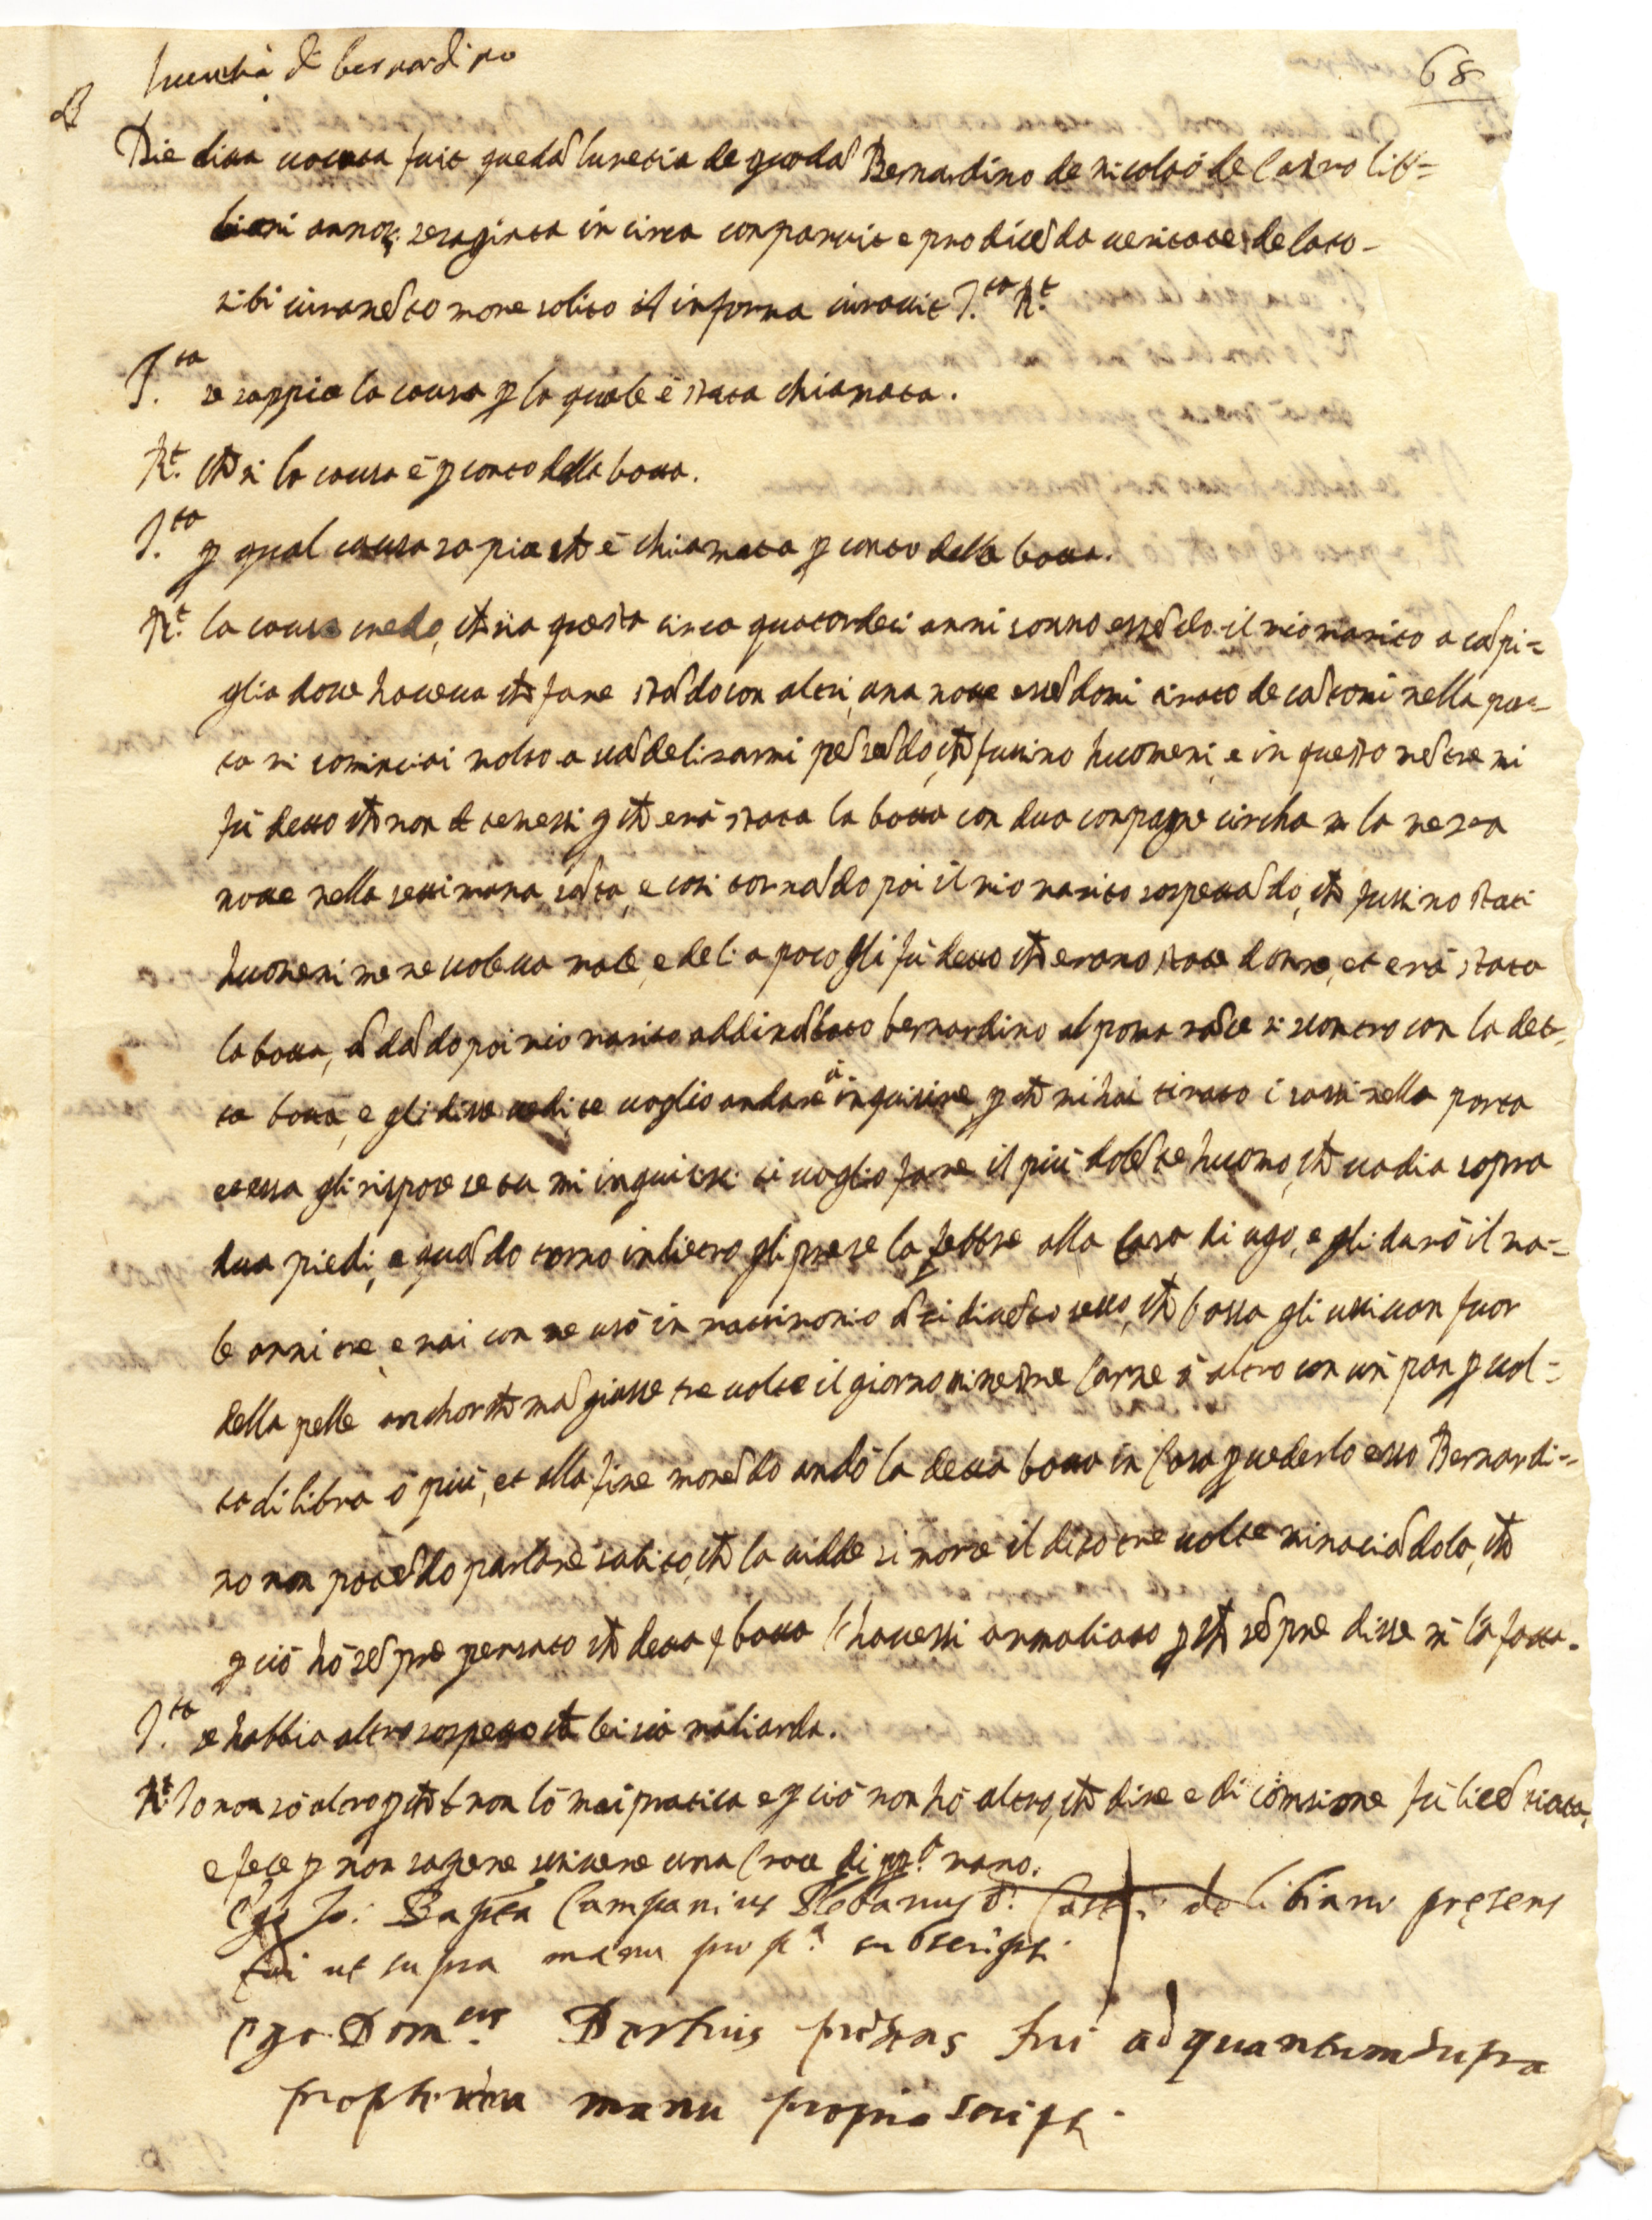 lucretia di bernardino
68
Die dicta uocata fuit quedã lucretia de quodã Bernardino de nicolaó de Castro lib=
biani annor. sesaginta in circa conparuit e pro dicẽda ueritate delato
sibi iuramẽto more solito et in forma iurauit I.ta R.t
I.ta se sappia la causa p la quale è stata chiamata.
R.t che si la causa è p conto della botta.
I.ta p qual causa sapia che è chiamata p conto della botta.
R.t la causa credo, che sia questa circa quatordeci anni sonno essẽdo il mio marito a cãpi=
glia doue haueua che fare stãdo con altri, una notte essẽdomi tirato de cãtoni nella por=
ta mi cominciai molto a scãdelizarmi pẽsãdo, che fussino huomeni, e in questo mẽtre mi
fú detto che non temessi p che erà stata la botta con dua conpagne circha a la meza
notte nella settimana sãta, e cosi tornãdo poi il mio marito sospettãdo, che fussino stati
huomeni me ne uoleua male, e de li a poco gli fú detto che erano state donne, et erà stata
la botta, ãdãdo poi mio marito addimãdato bernardino al poma rãce si scontro con la det=
ta botta, e gli disse uedi, te uoglio andare à inquisire, p che mi hai tirato i sassi nella porta
et essa gli rispose se tu mi inquisisci ti uoglio fare il piú dolẽte huomo, che uadia sopra
dua piedi, e quãdo torno indietro gli prese la febbre alla Casa di ugo, e gli durò il ma=
le anni tre, e mai con me usò in matrimonio ãzi diuẽto secco, che l'ossa gli usciuan fuor
della pelle anchorche mãgiasse tre uolte il giorno minestre Carne ò altro con un pan p uol=
ta di libra ò piú, et alla fine morẽdo andò la detta botta in Casa p uederlo esso Bernardi=
no non potẽdo parlare subito, che la uidde si morse il dito tre uolte minaciãdola, che
p ciò hò sẽpre pensato che detta botta l'hauessi amaliato p che sẽpre disse m'l'à fatta.
I.ta se habbia altro sospetto che lei sia maliarda.
R.t Io non sò altro p che non l'ò mai pratica e p ciò non hò altro, che dire e di comissione fú licẽtiata,
e fece p non sapere scriuere una Croce di pp.a mano.
Ego Jo: Bapta Campanius Plebanus d. Castri de libiani presens
fui ut supra manu prop.a subscripsi.
Ego Dom.cus Bertius presens fui ad quantum supra
propterea manu propria scripsi.